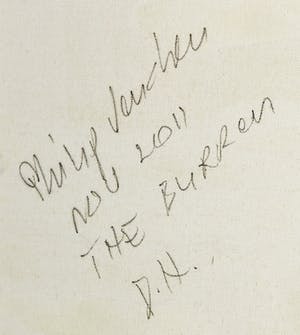 Philip
NOV 2011
THE BURREN
D.H.